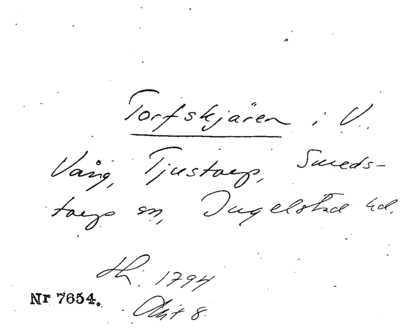 Torfskjären i V.
Vång, Tjustorp, Smeds-
torps sn, Ingelstad hd.
1794
Akt 8.
Nr 7654.